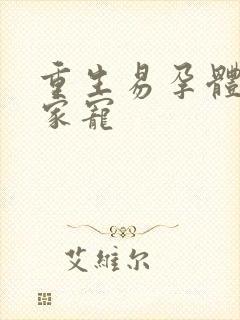 重生易孕體
家寵
艾維尔